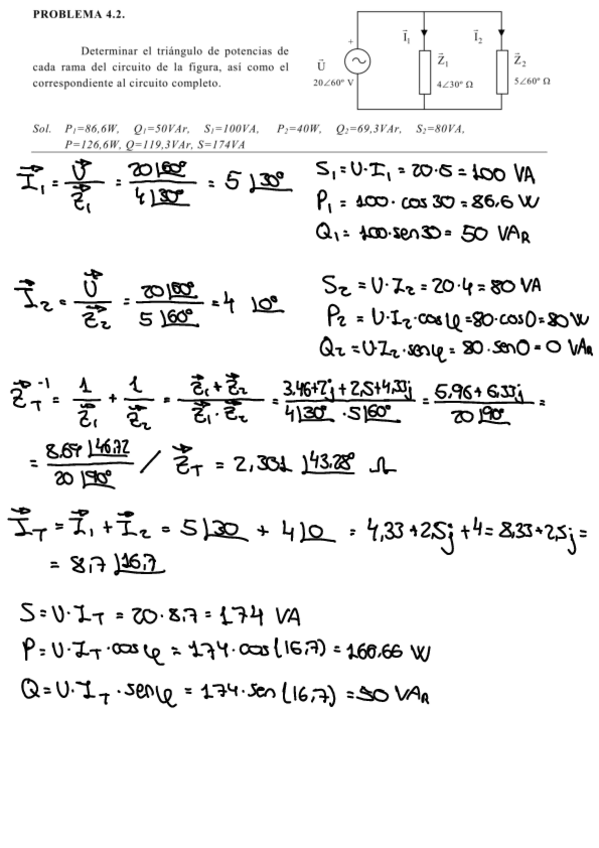 PROBLEMA 4.2.
Determinar el triángulo de potencias de
cada rama del circuito de la figura, así como el
correspondiente al circuito completo.
+
Ū
20∠60º V
Ī₁
Z̄₁
4∠30º Ω
Ī₂
Z̄₂
5∠60º Ω
Sol. P₁=86,6W, Q₁=50VAr, S₁=100VA, P₂=40W, Q₂=69,3VAr, S₂=80VA,
P=126,6W, Q=119,3VAr, S=174VA
I⃗₁ = U⃗/Z⃗₁ = 20|60º / 4|30º = 5|30º
S₁=U·I₁=20·5=100 VA
P₁ = 100·cos 30=86.6 W
Q₁=100·sen30= 50 VAR
I⃗₂ = U⃗/Z⃗₂ = 20|60º / 5|60º = 4 |0º
S₂ = U·I₂ = 20·4=80 VA
P₂ = U·I₂·cosφ=80·cos0=80W
Q₂=U·I₂·senφ= 80·sen0=0 VAR
Z⃗T⁻¹ = 1/Z⃗₁ + 1/Z⃗₂ = (Z⃗₁+Z⃗₂)/(Z⃗₁·Z⃗₂) = (3.46+2j+2,5+4.33j)/(4|30º·5|60º) = (5,96+6.33j)/(20|90º) =
= 8.69|46.72 / 20|90º / Z⃗T = 2,301 |43.28º Ω
I⃗T = I⃗₁+I⃗₂ = 5|30 + 4|0 = 4,33+2,5j+4=8,33+2,5j=
= 8,7|16,7
S=U·IT = 20·8.7=174 VA
P=U·IT·cosφ=174·cos(16,7)=166.66 W
Q=U·IT·senφ=174·sen(16,7)=50 VAR